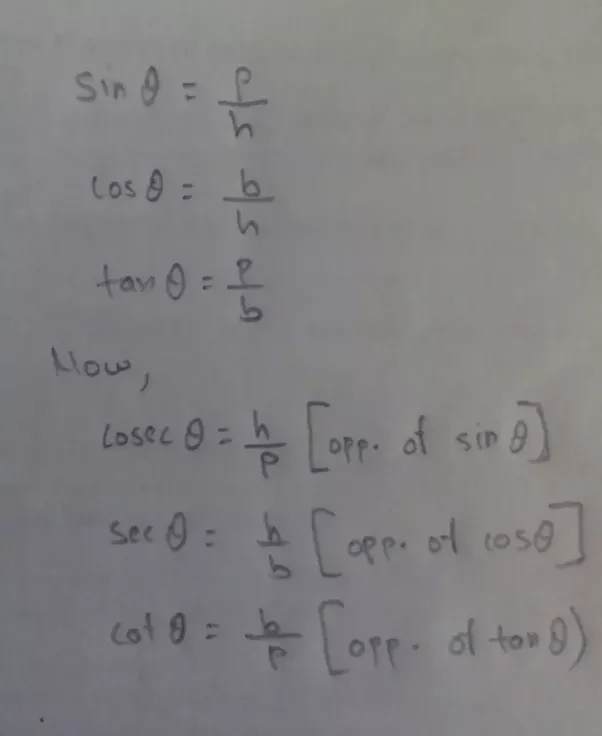 sin θ = p/h
cos θ = b/h
tan θ = p/b
Now,
cosec θ = h/p [opp. of sin θ]
sec θ = h/b [opp. of cos θ]
cot θ = b/p [opp. of tan θ)